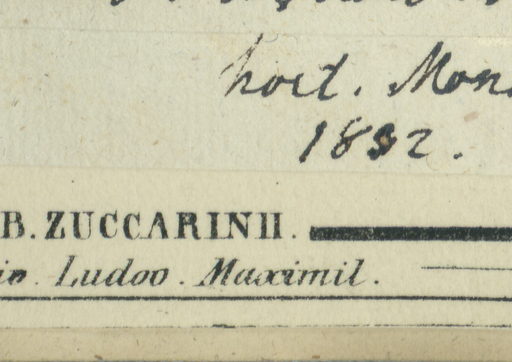 hort. Mon
1832.
B. ZUCCARINII.
Ludov. Maximil.